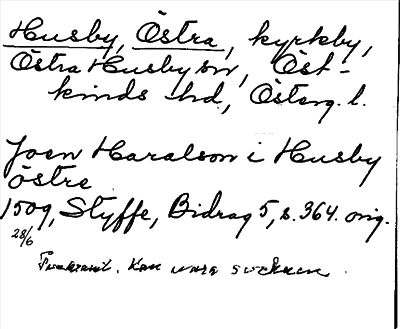 Husby, Östra, kyrkby,
Östra Husby sn, Öst-
kinds hd, Österg. l.
Joen Haralson i Husby
östre
1509, Styffe, Bidrag 5, s. 364. orig.
28/6
Kan vara socknen.